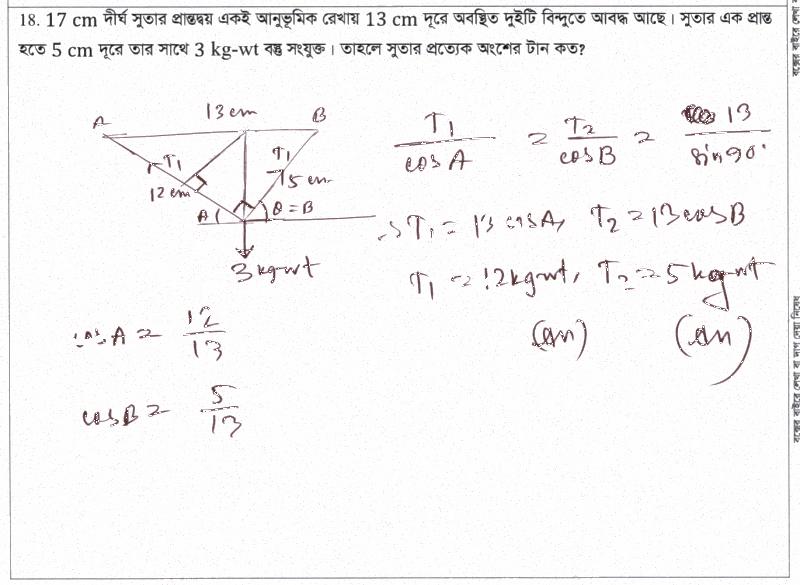 18. 17 cm দীর্ঘ সুতার প্রান্তদ্বয় একই আনুভূমিক রেখায় 13 cm দূরে অবস্থিত দুইটি বিন্দুতে আবদ্ধ আছে। সুতার এক প্রান্ত
হতে 5 cm দূরে তার সাথে 3 kg-wt বস্তু সংযুক্ত। তাহলে সুতার প্রত্যেক অংশের টান কত?
A 13 cm B
T₁ T₁
12 cm 5 cm
A θ = B
3 kg-wt
T₁/cosA = T₂/cosB = 13/sin90°
T₁ = 13 cosA, T₂ = 13 cosB
T₁ = 12 kg-wt, T₂ = 5 kg-wt
(an) (an)
cosA = 12/13
cosB = 5/13